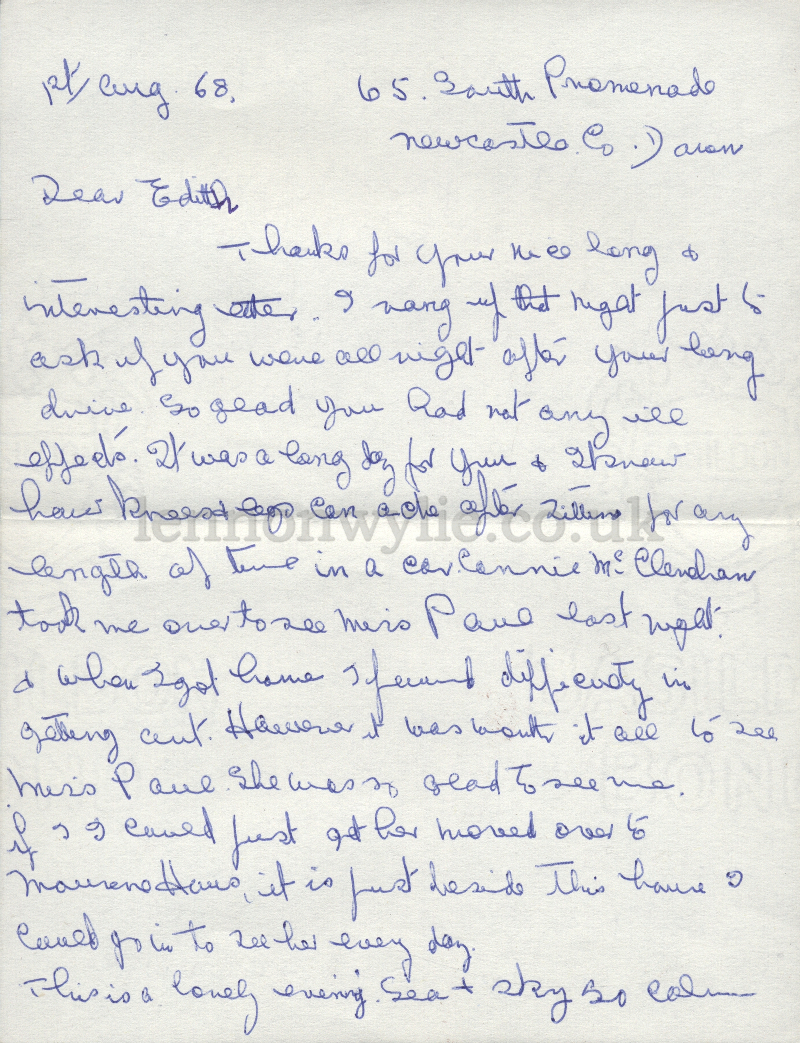 1st/ Aug. 68.
65. South Promenade
Newcastle. Co. Down
Dear Edith
Thanks for your nice long &
interesting letter. I rang up that night just to
ask if you were all right after your long
drive. So glad you had not any ill
effects. It was a long day for you & I know
how knees & legs can ache after sitting for any
length of time in a car. Connie McClenahan
took me over to see Miss Paul last night.
& when I got home I found difficulty in
getting out. However it was worth it all to see
Miss Paul. She was so glad to see me.
if I I could just get her moved over to
Mourne Haus, it is just beside this house I
could go in to see her every day.
This is a lovely evening. Sea & sky so calm
lennonwylie.co.uk